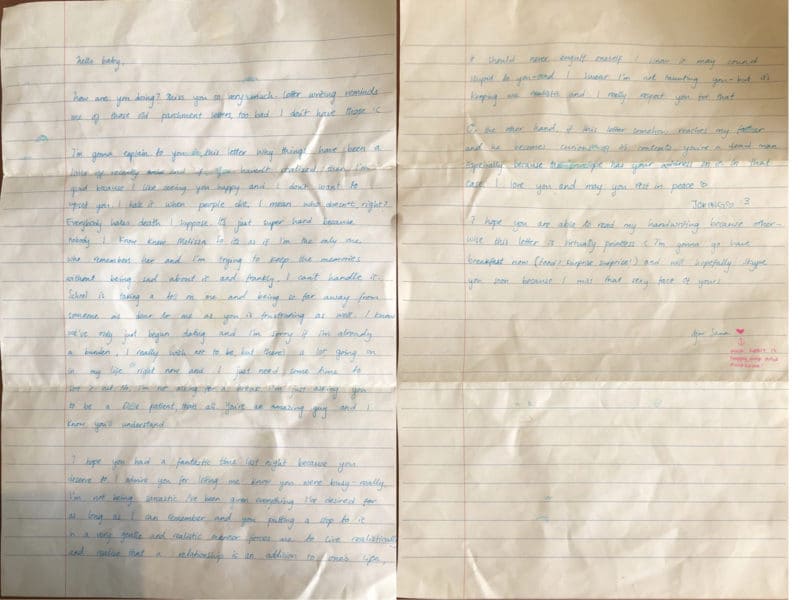 hello baby,
how are you doing? Miss you so very much. Letter writing reminds
me of these old parchment letters, too bad I don't have those :c
I'm gonna explain to you in this letter why things have been a
of recently and if you haven't realized, then I'm
glad because I like seeing you happy and I don't want to
upset you. I hate it when people die, I mean who doesn't, right?
Everybody hates death I suppose it's just super hard because
nobody I know knew Melissa so it's as if I'm the only one
who remembers her and I'm trying to keep the memories
without being sad about it and frankly, I can't handle it.
School is taking a toll on me and being so far away from
someone as dear to me as you is frustrating as well. I know
we've only just begun dating and I'm sorry if I'm already
a burden, I really wish not to be, but there's a lot going on
in my life right now and I just need some time to
I'm not asking for a break, I'm just asking you
to be a little patient, that's all. You're an amazing guy and I
know you'll understand.
I hope you had a fantastic time last night because you
deserve to. I admire you for letting me know you were busy-really
I'm not being sarcastic. I've been given everything I've desired for
as long as I can remember and you putting a stop to it
in a very gentle and realistic manner forces me to live realistically
and realise that a relationship is an addition to one's life,
it should never engulf oneself. I know it may sound
stupid to you-and I swear I'm not taunting you-but it's
keeping me realistic and I really respect you for that
On the other hand, if this letter somehow reaches my father
and he becomes curious of its contents you're a dead man
Especially because the envelope has your address on it so in that
case, I love you and may you rest in peace
JOKINGGG :3
I hope you are able to read my handwriting because other-
wise this letter is virtually pointless :c I'm gonna go have
breakfast now (food! surprise surprise!) and will hopefully skype
you soon because I miss that very face of yours